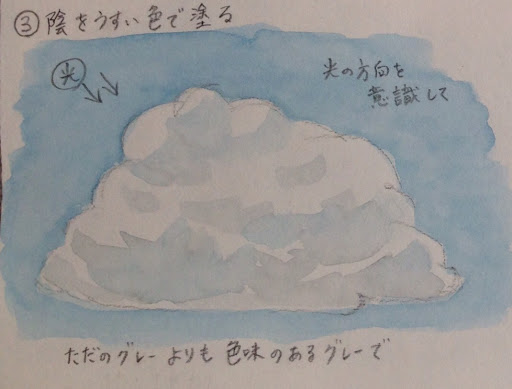 ③陰をうすい色で塗る
光
光の方向を
意識して
ただのグレーよりも色味のあるグレーで